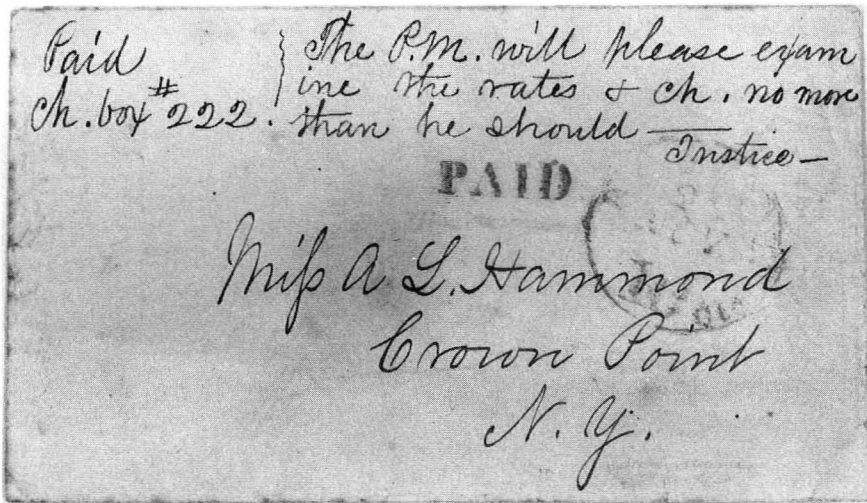 Paid
Ch. box #222.
The P.M. will please exam
ine the rates & ch. no more
than he should —
Justice —
PAID
Miſs A L. Hammond
Crown Point
N. Y.